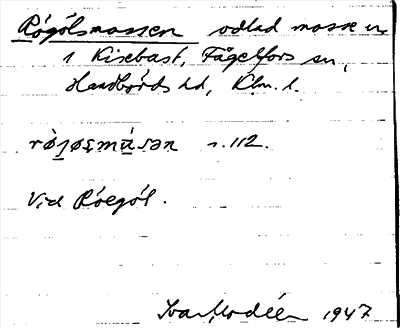 Rógölsmossen odlad mosse u
1 Kisebast, Fågelfors sn,
Handbörds hd, Klm. l.
s. 112.
Vid Röegöl.
Ivar Modéer 1947